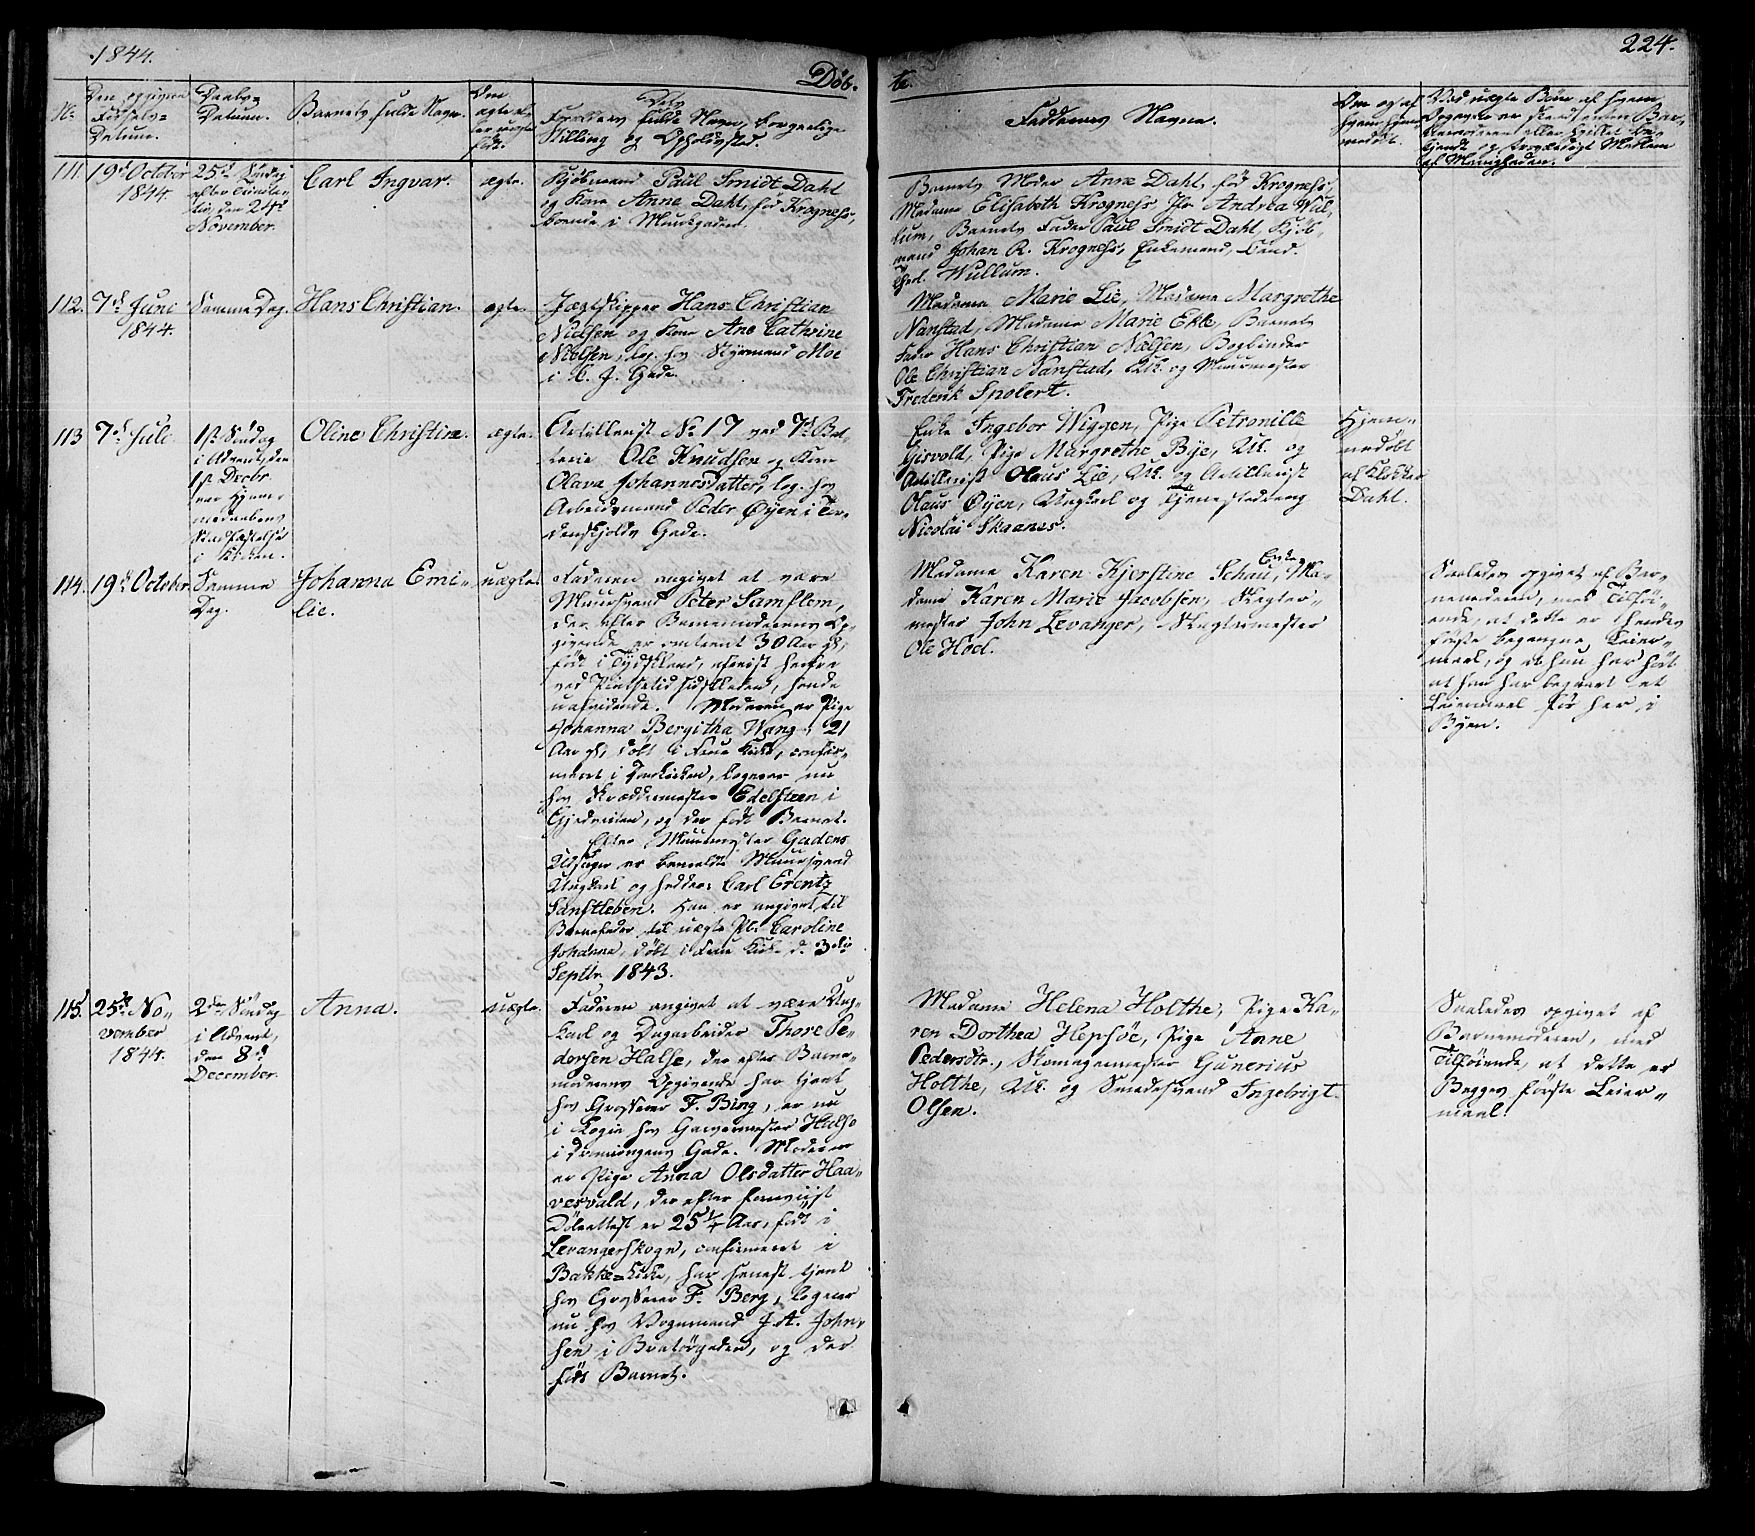 1844.
224.
Døb-
te.
No
Den opgivne
Fødsels-
Datum.
Daabs-
Datum.
Barnets fulde Navn.
Om
ægte el-
ler uægte
født.
Forældres fulde Navn, borgerlige
Stilling og Opholdssted.
Faddernes Navne.
Om og af
hvem hjem-
medøbt.
Ved uægte Børn af hvem
111.
19de October
1844.
25de Søndag
efter Trinita-
tis, den 24de
November.
Carl Ingvar.
ægte.
Kjøbmand Paul Smidt Dahl
og Kone Anna Dahl, fød Krogness,
boende i Munkgaden.
Barnets Moder Anna Dahl, fød Krogness,
Madame Elisabeth Krogness, Jfr Andrea Wul-
lum, Barnets Fader Paul Smidt Dahl, Kjøb-
mand Johan R. Krogness, Enkemand, Cand.
theol. Wullum.
112.
7de Juni
1844.
Samme Dag.
Hans Christian.
ægte.
Jægtskipper Hans Christian
Nielsen og Kone Ane Cathrine
Nielsen, log. hos Styrmand Moe
i K. J. Gade.
Madame Marie Lie, Madame Margrethe
Nanstad, Madame Marie Ekle, Barnets
Fader Hans Christian Nielsen, Bogbinder
Ole Christian Nanstad, Uk. og Muurmester
Frederik Spolert.
113
7de Juli
1ste Søndag
i Advent, den
1ste Decbr.
var Hjem-
medaabens
Stadfæstelse
i Kirken.
Oline Christine.
ægte.
Artillerist No 17 ved 7de Bat-
terie Ole Knudsen og Kone
Olava Johannesdatter, log. hos
Arbeidsmand Peder Øyen i Tor-
denskjolds Gade.
Enke Ingebor Wiggen, Pige Petronille
Gisvold, Pige Margrethe Bye, Uk. og
Artillerist Olaus Lie, Uk. og Artillerist
Olaus Øyen, Ungkarl og Tjenestedreng
Nicolai Skaanes.
Hjem-
medøbt
af Klokker
Dahl.
114.
19de October
Samme
Dag.
Johanna Emi-
lie.
uægte.
Faderen angivet at være
Muursvend Peter Samflem,
der efter Barnemoderens Op-
givende er omtrent 30 Aar gl,
født i Tydskland, afreist herfra
ved Pintsetid sidstleden, hende
uafvidende. Moderen er Pige
Johanna Bergitha Wang, 21
Aar gl, døbt i Frue Kirke, confir-
meret i Domkirken, logerer nu
hos Skræddermester Edelsteen i
Gjedveiten, og der født Barnet.
Efter Muurmester Gadens
Udsagn er bemeldte Muursvend
Ungkarl og hedder Carl Erentz
Sanftleben. Han er angivet til
Barnefader til uægte Pb. Caroline
Johanna, døbt i Frue Kirke d. 3die
Septbr 1843.
Madame Karen Kjerstine Schau, Enke, Ma-
dame Karen Marie Jacobsen, Slagter-
mester John Levanger, Slagtermester
Ole Hod.
Saaledes opgivet af Bar-
nemoderen, med Tilføi-
ende, at dette er hendes
første begangne Leier-
maal, og at hun har hørt
at han har begaaet et
Leiermaal før her i
Byen.
115.
25de No-
vember
1844.
2den Søndag
i Advent,
den 8de
December.
Anna.
uægte.
Faderen angivet at være Ung-
karl og Dagarbeider Thore Pe-
dersen Halse, der efter Barne-
moderens Opgivende har tjent
hos Grosserer F. Bing, er nu
i Logie hos Garvermester Halse
i Dronningens Gade. Moderen
er Pige Anna Olsdatter Haa-
vesvald, der efter foreviist
Døbeattest er 25 1/4 Aar, født i
Levangerskogn, confirmeret i
Bakke-Kirke, har senest tjent
hos Grosserer F. Berg, logerer
nu hos Vognmand J. A. John-
sen i Bratørgaden, og der
født Barnet.
Madame Helena Holthe, Pige Ka-
ren Dorthea Hepsöe, Pige Anne
Pedersdtr., Skomagermester Gunerius
Holthe, Uk. og Smedesvend Ingebrigt
Olsen.
Saaledes opgivet af
Barnemoderen, med
Tilføiende, at dette er
Begges første Leier-
maal.